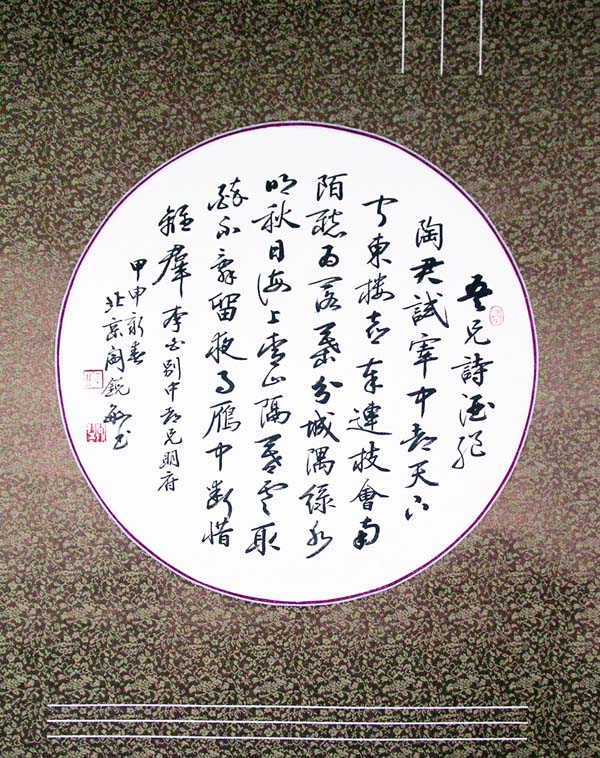 吾兄詩酒繼
陶君試宰中都天下
聞東樓喜奉連枝會南
陌愁為落葉分城隅綠水
明秋日海上青山隔暮雲取
醉不辭留夜月雁中斷惜
離群 李白別中都兄明府
甲申新春
北京閻銳敏書